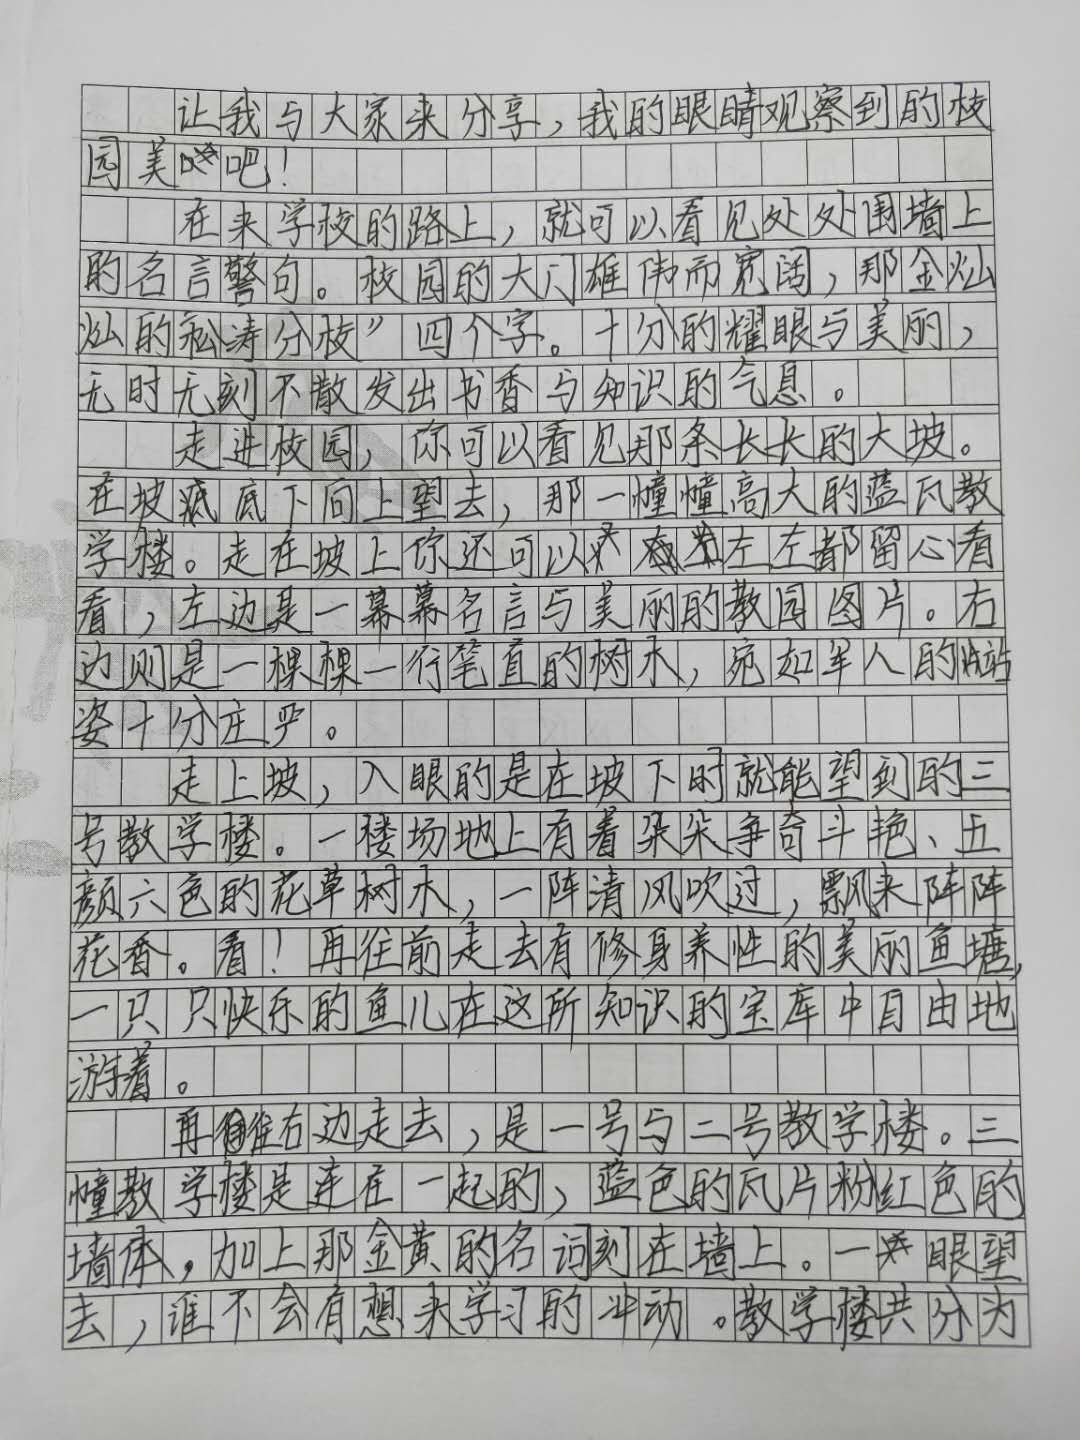 让我与大家来分享,我的眼睛观察到的校
园美吧!
在来学校的路上,就可以看见处处围墙上
的名言警句。校园的大门雄伟而宽阔,那金灿
灿的松涛分校”四个字。十分的耀眼与美丽,
无时无刻不散发出书香与知识的气息。
走进校园,你可以看见那条长长的大坡。
在坡底底下向上望去,那一幢幢高大的蓝瓦教
学楼。走在坡上你还可以左左都留心看
看,左边是一幕幕名言与美丽的教园图片。右
边则是一棵棵一行笔直的树木,宛如军人的站
姿十分庄严。
走上坡,入眼的是在坡下时就能望到的三
号教学楼。一楼场地上有着朵朵争奇斗艳、五
颜六色的花草树木,一阵清风吹过,飘来阵阵
花香。看!再往前走去有修身养性的美丽鱼塘,
一只只快乐的鱼儿在这所知识的宝库中自由地
游着。
再往右边走去,是一号与二号教学楼。三
幢教学楼是连在一起的,蓝色的瓦片粉红色的
墙体,加上那金黄的名词刻在墙上。一眼望
去,谁不会有想来学习的冲动。教学楼共分为